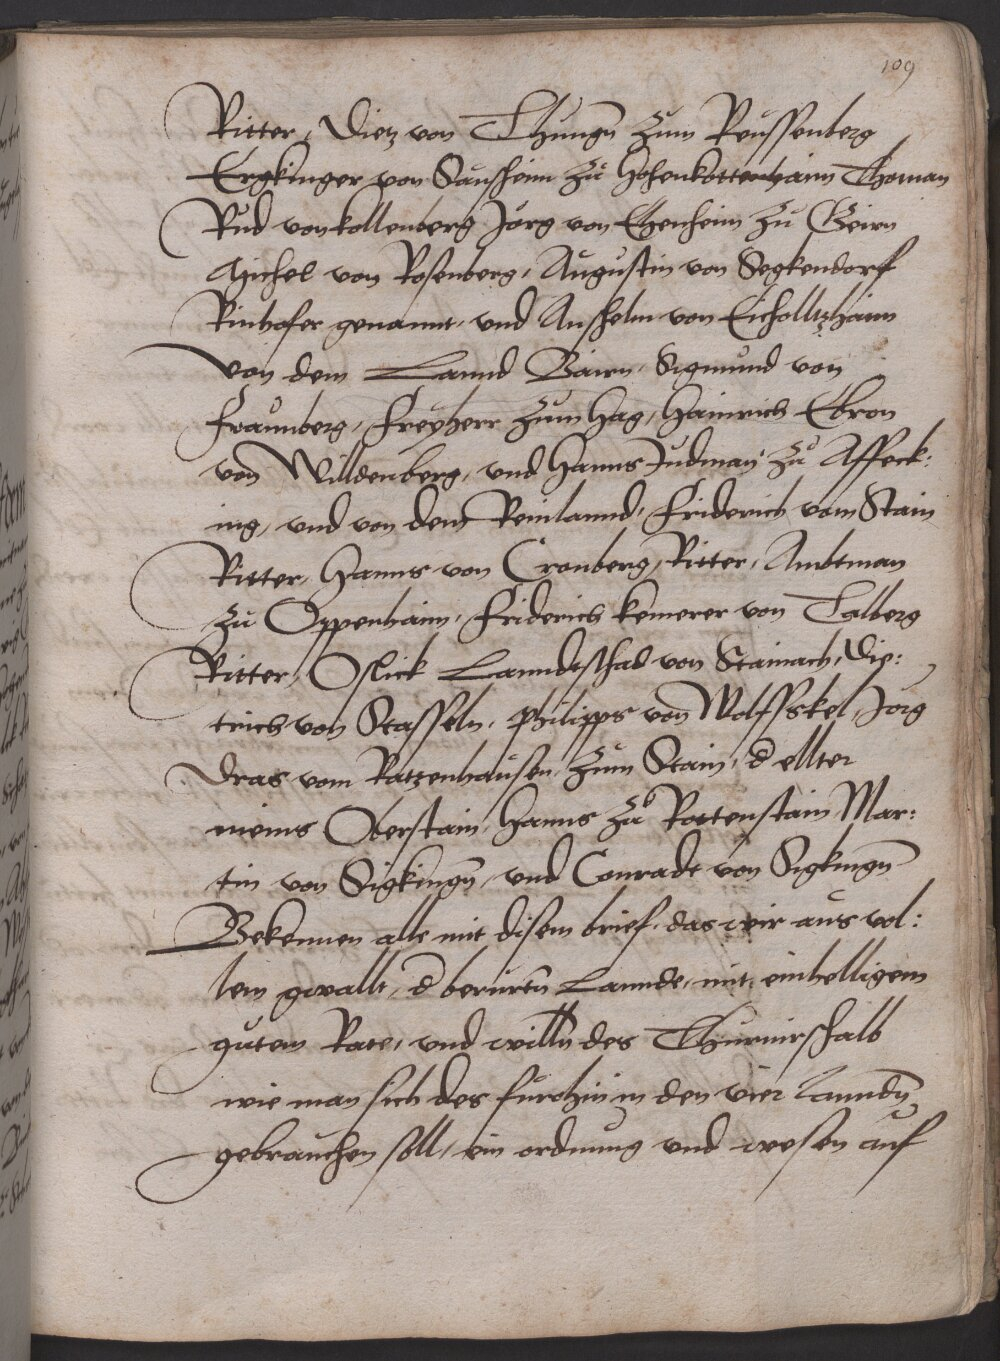 109
Ritter, Dietz von Thungn̄ zum Reussenberg
Ergkinger von Saunsheim zu Hohenkottenhaim Thoman
Rud von kollenberg Jorg von Ehenheim zu Geirn
Michel von Rosenberg, Augustin von Segkendorf
Rinhofer genannt, und Anshelm von Eicholltzhaim
von dem Lannd Bairn, Sigmund von
fraunberg, Freyherr zum Hag, Hainrich Ebron
von Willdenberg, und Hanns Judman zu Affeck:
ing, und von dem Reinlannd, Friderich vom Stain
Ritter, Hanns von Cronberg, Ritter, Ambtman
zu Oppenhaim, Friderich kemerer von Talberg
Ritter, Oslick Lanndtschad von Stainach, Die:
trich von Staffeln, Philipps von Wolffskel, Jorg
vom Ratzenhausen zum Stain, d ellter
Oberstain, Hanns zu Rottenstain Mar:
tin von Sigkingn̄, und Conradt von Sigkingn̄
Bekennen alle mit disem brief, das wir aus vol:
lem gwallt, d berurtn̄ Lannde, mit einhelligem
gutem Rate, und willn̄ des Thurnirshalb
wie man sich des furohin in den vier Lanndn̄
gebrauchen soll, ein ordnung und wesen auf